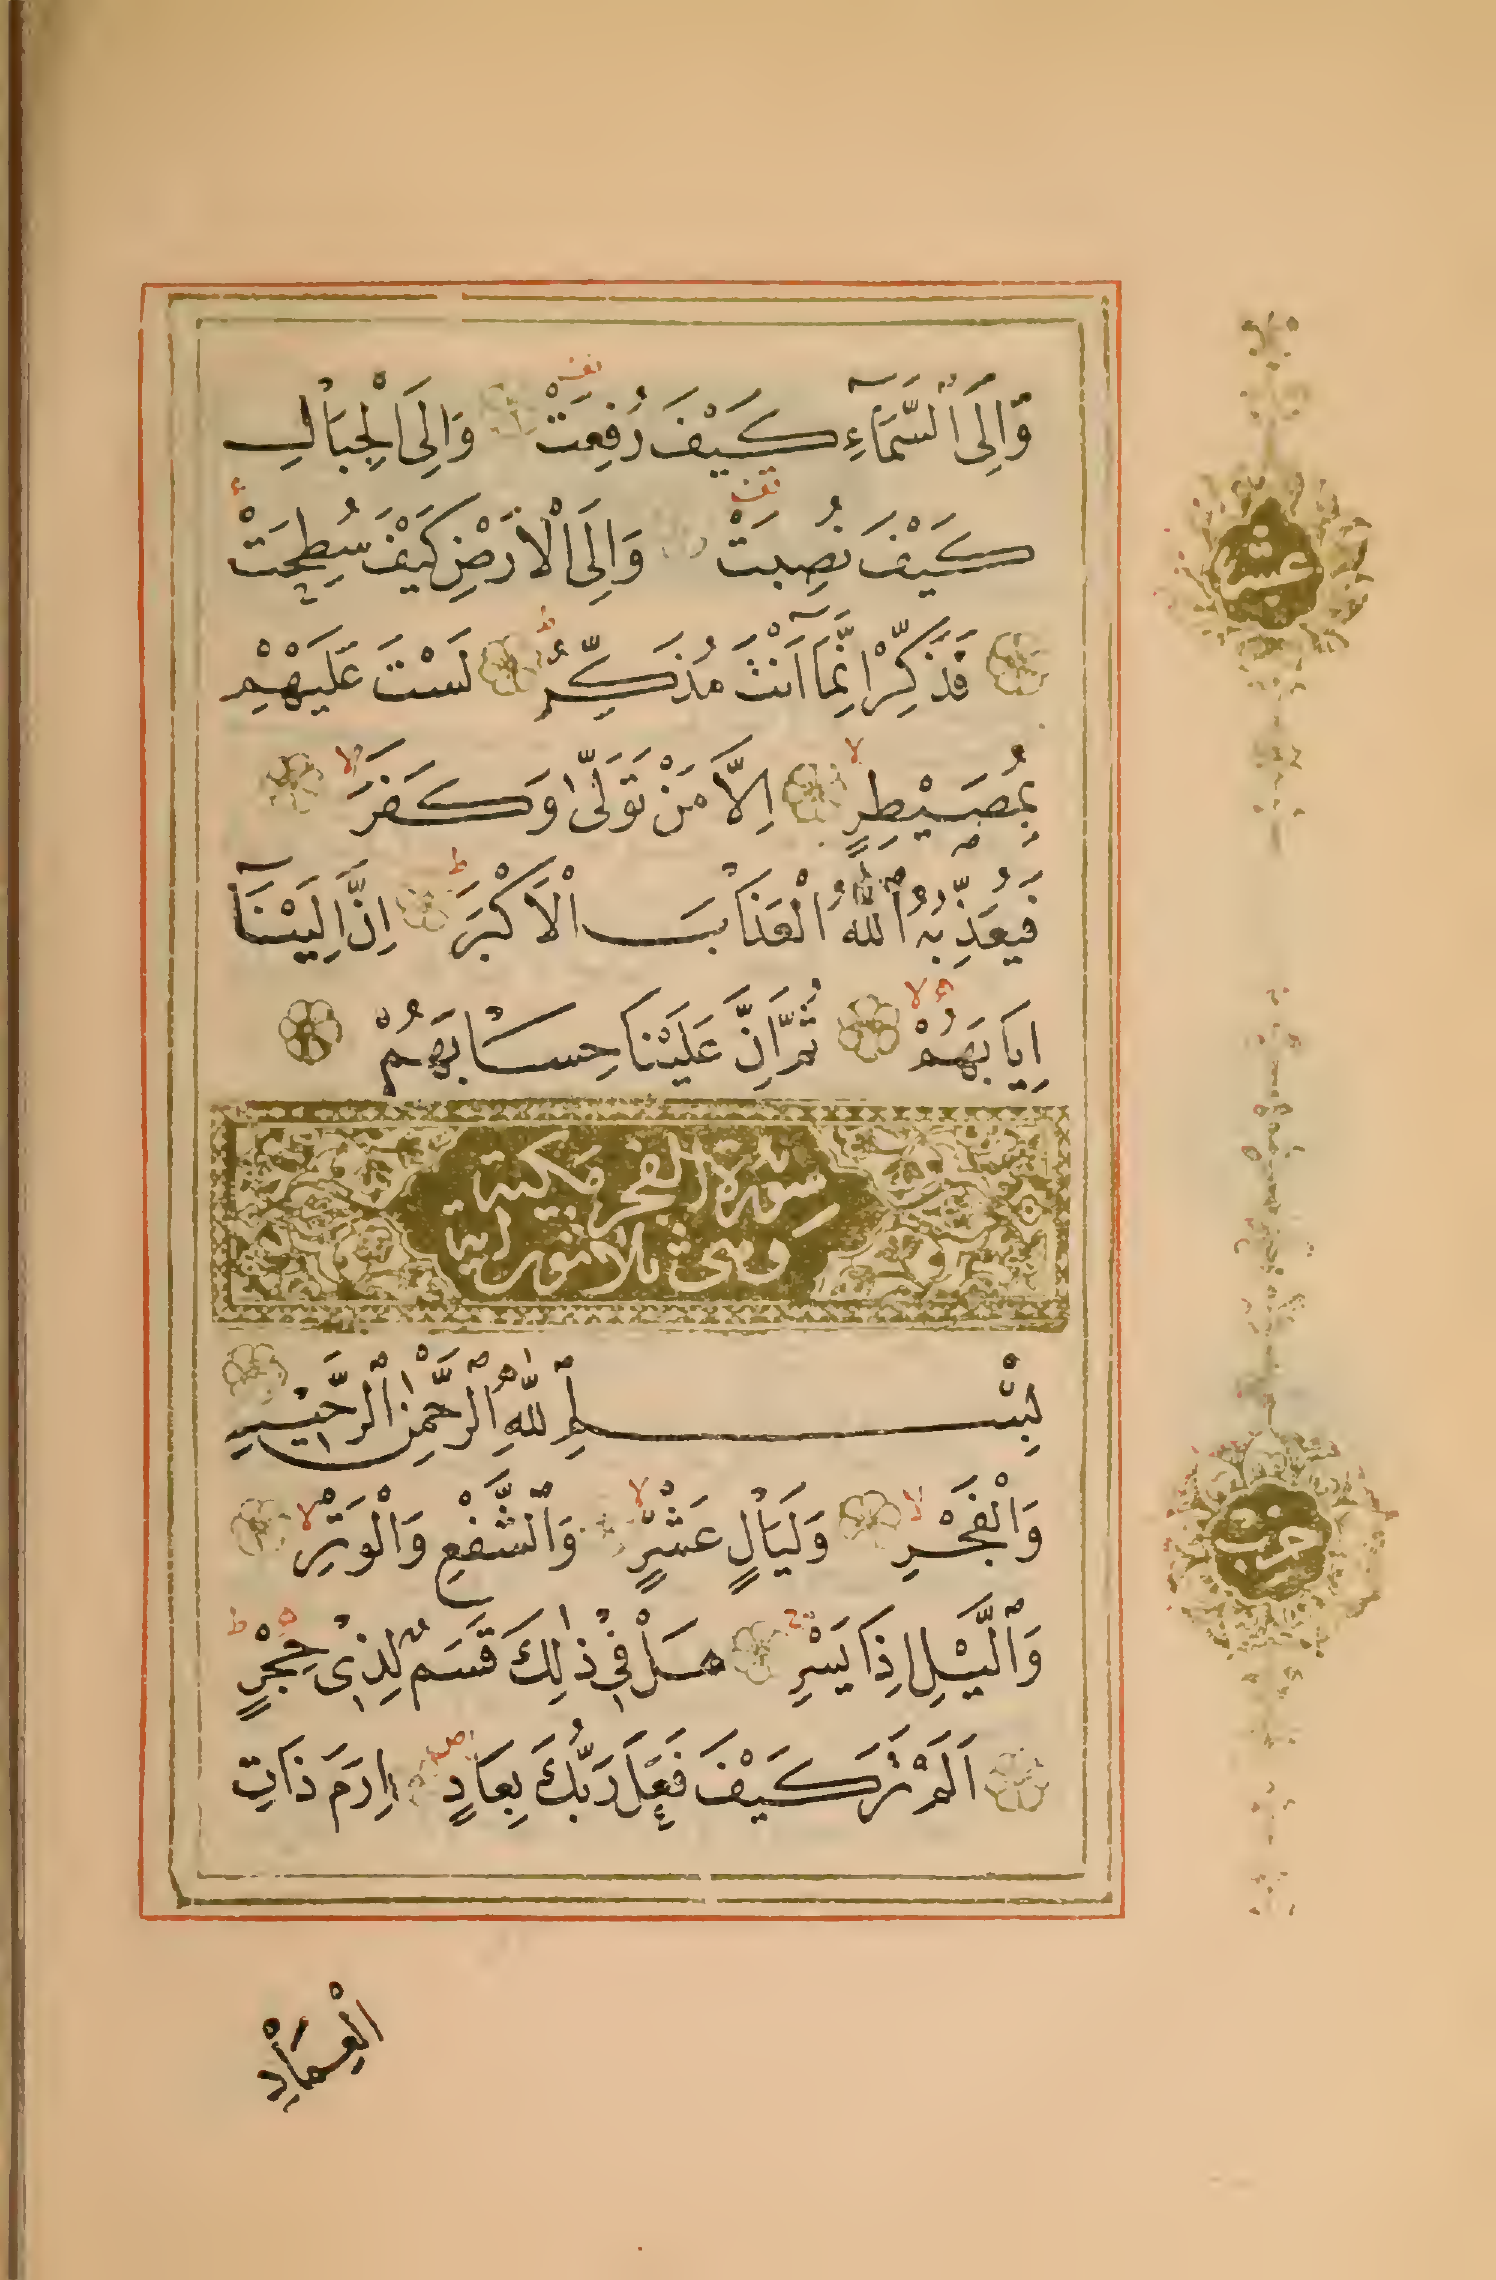 وَاِلَى السَّمَآءِ كَيْفَ رُفِعَتْ وَاِلَى الْجِبَالِ
كَيْفَ نُصِبَتْ وَاِلَى الْاَرْضِ كَيْفَ سُطِحَتْ
فَذَكِّرْ اِنَّمَآ اَنْتَ مُذَكِّرٌ لَسْتَ عَلَيْهِمْ
بِمُصَيْطِرٍ اِلَّا مَنْ تَوَلّٰى وَكَفَرَ
فَيُعَذِّبُهُ اللّٰهُ الْعَذَابَ الْاَكْبَرَ اِنَّ اِلَيْنَآ
اِيَابَهُمْ ثُمَّ اِنَّ عَلَيْنَا حِسَابَهُمْ
سورة الفجر مكية
وهى ثلاثون اية
بِسْمِ اللّٰهِ الرَّحْمٰنِ الرَّحِيْمِ
وَالْفَجْرِ وَلَيَالٍ عَشْرٍ وَالشَّفْعِ وَالْوَتْرِ
وَالَّيْلِ اِذَا يَسْرِ هَلْ فِيْ ذٰلِكَ قَسَمٌ لِّذِيْ حِجْرٍ
اَلَمْ تَرَ كَيْفَ فَعَلَ رَبُّكَ بِعَادٍ اِرَمَ ذَاتِ
الْعِمَادِ
عشر
حزب